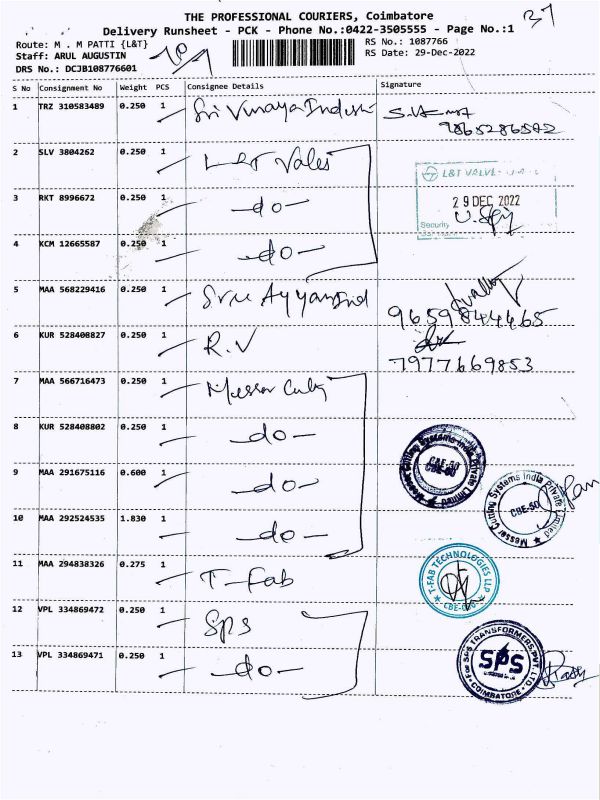 THE PROFESSIONAL COURIERS, Coimbatore
37
Delivery Runsheet - PCK - Phone No.:0422-3505555 - Page No.:1
Route: M . M PATTI {L&T}
RS No.: 1087766
Staff: ARUL AUGUSTIN
RS Date: 29-Dec-2022
DRS No.: DCJB108776601
S No Consignment No Weight PCS Consignee Details Signature
1 TRZ 310583489 0.250 1 Sri Vinaya Indust
9865286542
2 SLV 3804262 0.250 1 L&T Vales
L&T VALVE
3 RKT 8996672 0.250 1 -do-
29 DEC 2022
Security
4 KCM 12665587 0.250 1 -do-
5 MAA 568229416 0.250 1 Sree Ayyan Ind
9659844465
6 KUR 528408827 0.250 1 R.V
7977669853
7 MAA 566716473 0.250 1 Messer Cuty
8 KUR 528408802 0.250 1 -do-
Messer Cutting Systems India Private Limited
CBE-50
9 MAA 291675116 0.600 1 -do-
Messer Cutting Systems India Private Limited
CBE-50
10 MAA 292524535 1.830 1 -do-
11 MAA 294838326 0.275 1 T-Fab
T-FAB TECHNOLOGIES LLP
12 VPL 334869472 0.250 1 Sps
For SPS TRANSFORMERS PVT. LTD.
SPS
COIMBATORE
13 VPL 334869471 0.250 1 -do-